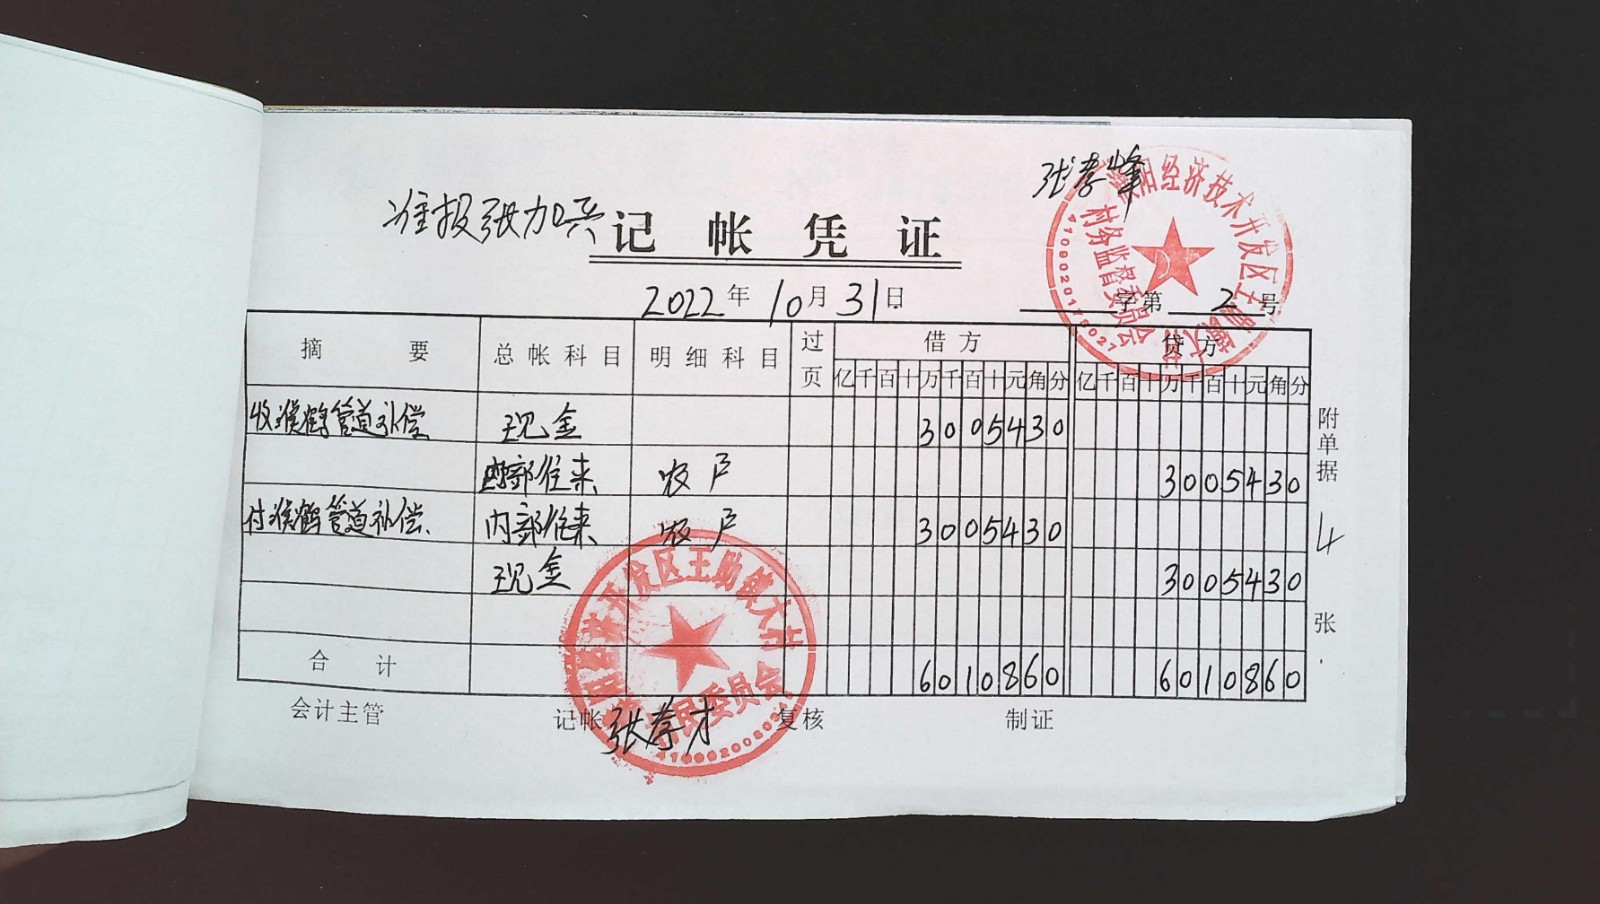 张孝峰
准报张加兴
记帐凭证
2022年10月31日
字第 2 号
摘要 总帐科目 明细科目 过页 借方 贷方
亿千百十万千百十元角分 亿千百十万千百十元角分
收濮鹤管道补偿 现金 3005430
内部往来 农户 3005430
付濮鹤管道补偿 内部往来 农户 3005430
现金 3005430
合计 6010860 6010860
附单据 4 张
会计主管 记帐 张孝才 复核 制证
濮阳经济技术开发区王助镇
村务监督委员会
开发区王助镇
村民委员会